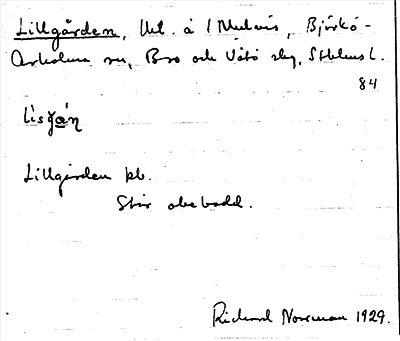 Lillgården, Utl. å 1 Melnäs, Björkö-
Arholma sn, Bro och Vätö slg, Sthlms l.
84
lìsgá̱n
Lillgården kb.
Står obebodd.
Richard Norrman 1929.